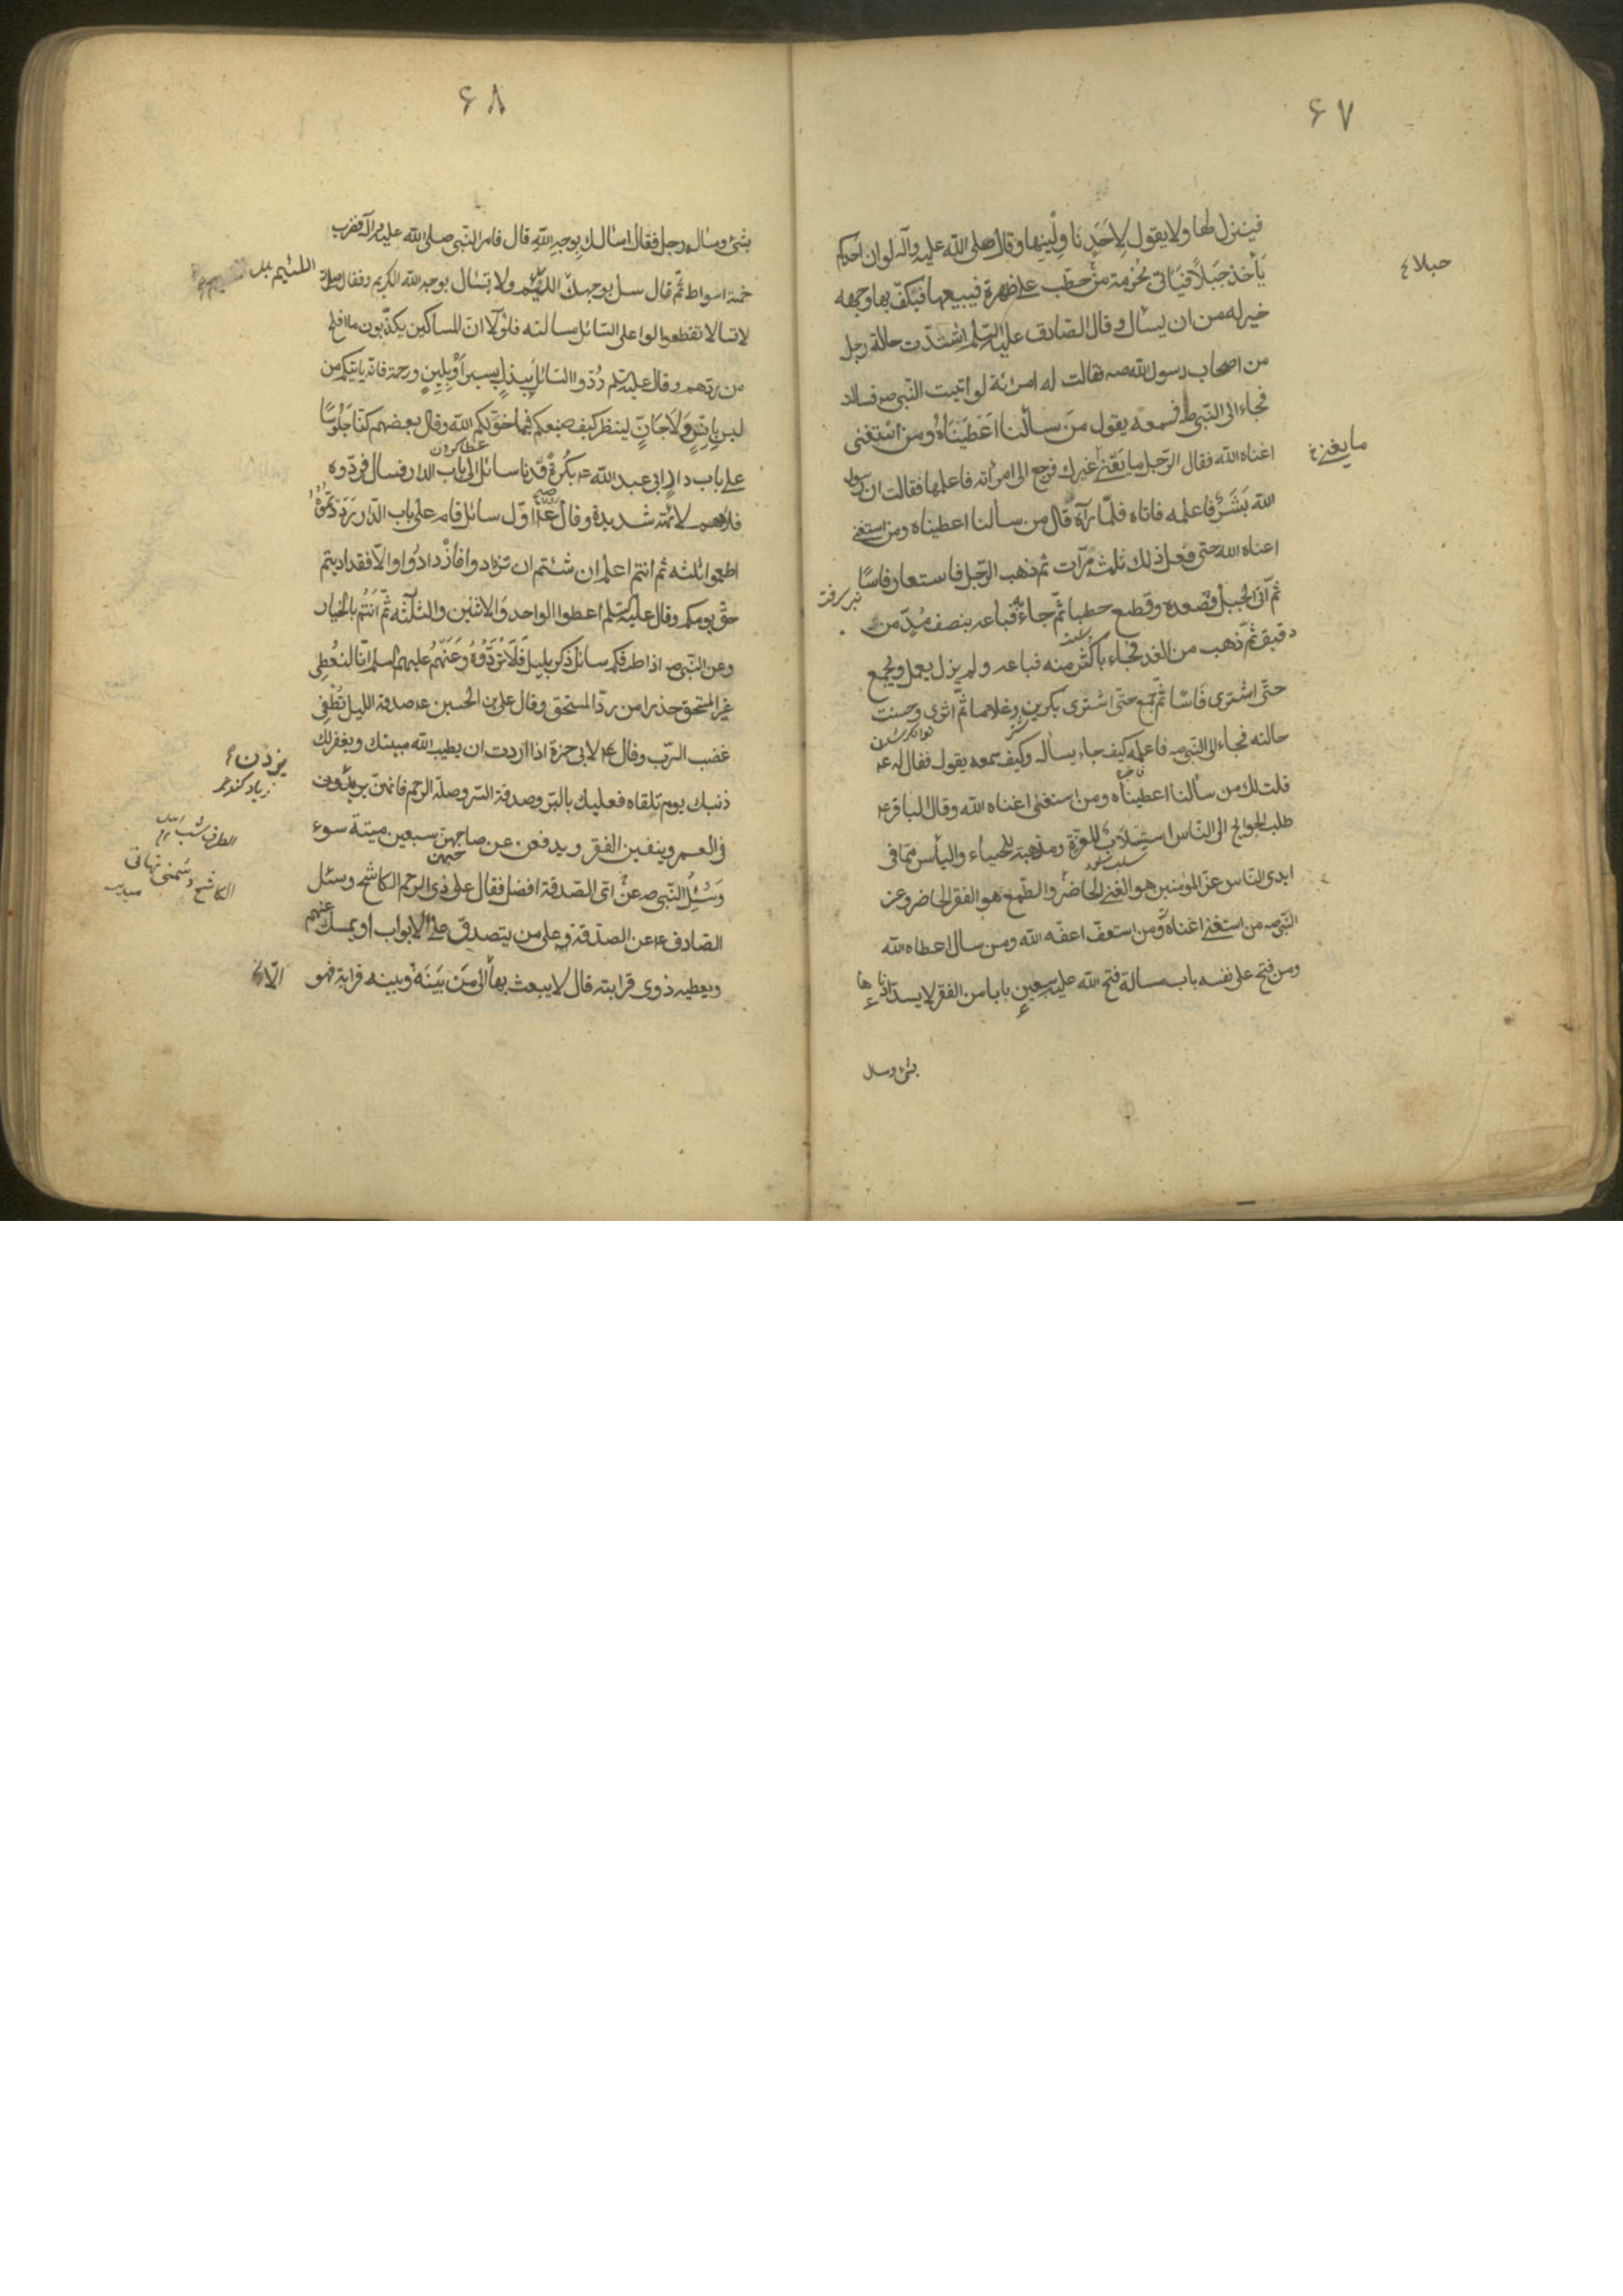 ۶۷
فينزل لها ولا يقول لاحد ناولينها وقال صلى الله عليه وآله لو ان احدكم
يأخذ حبلا فيأتى بحزمة من حطب على ظهره فيبيعها فيكف بها وجهه
حبلا ع
خير له من ان يسأل وقال الصادق عليه السلم اشتدت حالة رجل
من اصحاب رسول الله صه فقالت له امرئة لو اتيت النبى ص فسالته
فجاء الى النبى ط فسمعه يقول من سألنا اعطيناه ومن استغنى
اغناه الله فقال الرجل ما يعنى غيرك فرجع الى امرأته فاعلمها فقالت ان رسول
ما يعنى خ
الله بشر فاعلمه فاتاه فلما رآه قال من سألنا اعطيناه ومن استغنى
اغناه الله حتى فعل ذلك ثلثة مرات ثم ذهب الرجل فاستعار فاسا
ثم اتى الجبل فصعده وقطع حطبا ثم جاء به فباعه بنصف مد من
دقيق ثم ذهب من الغد فجاء باكثر منه فباعه ولم يزل يعمل ويجمع
حتى اشترى فاسا ثم جمع حتى اشترى بكرين وغلاما ثم اثرى وحسنت
حالته فجاء الى النبى صه فاعلمه كيف جاء يساله وكيف سمعه يقول فقال له عه
قلت لك من سألنا اعطيناه ومن استغنى اغناه الله وقال الباقر عه
طلب الحوايج الى الناس استلاب للعزة ومذهبة للحياء واليأس مما فى
ايدى الناس عز المؤمنين هو الغنى الحاضر والطمع هو الفقر الحاضر وعن
النبى صه من استغنى اغناه ومن استعف اعفه الله ومن سال اعطاه الله
ومن فتح على نفسه باب مسالة فتح الله عليه سبعين بابا من الفقر لا يسد ادناها
بشىء وسال
۶۸
بشىء وساله رجل فقال اسالك بوجه الله قال فامر النبى صلى الله عليه وآله فضرب
خمسة اسواط ثم قال سل بوجهك اللئيم ولا تسئال بوجه الله الكريم وقال
اللئيم
لا تقطعوا على السائل مسالته فلولا ان المساكين يكذبون ما افلح
من ردهم وقال عليه السلم ردوا السائل ببذل يسير او بلين ورحمة فانه ياتيكم من
ليس بانس ولا جان لينظر كيف صنعكم فيما خولكم الله وقال بعضهم كنا جلوسا
عطا كردن
على باب دار ابى عبد الله عه بكرة فدنا سائل الى باب الدار فسال فردوه
فلامهم لائمة شديدة وقال اول سائل قام على باب الدار رددتموه
اطعموا ثلثه ثم انتم اعلم ان شئتم ان تزدادوا فازدادوا والا فقد اديتم
حق يومكم وقال عليه السلم اعطوا الواحد والاثنين والثلثه ثم انتم بالخيار
وعن النبى صه اذا طرقكم سائل ذكر بليل فلا تردوه وعنهم عليهم السلم انا لنعطى
غير المستحق حذرا من رد المستحق وقال على بن الحسين عه صدقة الليل تطفى
غضب الرب وقال عه لابى حمزة اذا اردت ان يطيب الله ميتتك ويغفر لك
ذنبك يوم تلقاه فعليك بالبر وصدقة السر وصلة الرحم فانهن يزدن
يزدن ع
زياد كنند
فى العمر وينفين الفقر ويدفعن عن صاحبهن سبعين ميتة سوء
وسئل النبى صه عن اى الصدقة افضل فقال على ذى الرحم الكاشح وسئل
الكاشح دشمنى نهانى
الصادق عه عن الصدقة على من يتصدق على الابواب او يمسك عنهم
ويعطيه ذوى قرابته قال لا يبعث بها الى من بينه وبينه قرابة فهو